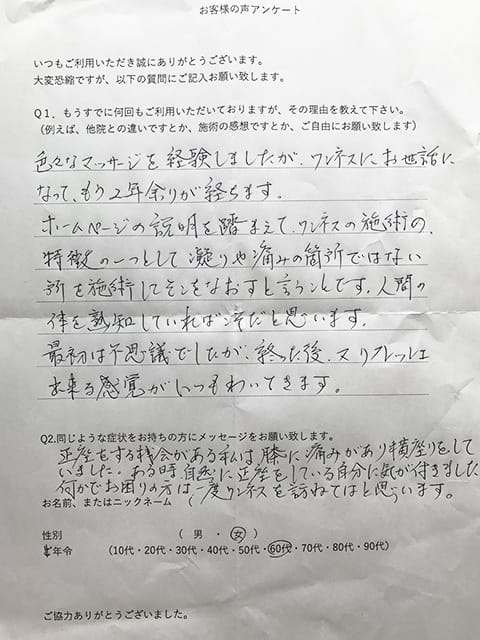 お客様の声アンケート
いつもご利用いただき誠にありがとうございます。
大変恐縮ですが、以下の質問にご記入お願い致します。
Q1．もうすでに何回もご利用いただいておりますが、その理由を教えて下さい。
（例えば、他院との違いですとか、施術の感想ですとか、ご自由にお願い致します）
色々なマッサージを経験しましたが、ワンネスにお世話に
なって、もう2年余りが経ちます。
ホームページの説明を踏まえて、ワンネスの施術の、
特徴の一つとして凝りや痛みの箇所ではない
所を施術してそこをなおすと言うことです。人間の
体を熟知していればこそだと思います。
最初は不思議でしたが、終った後、又リフレッシュ
出来る感覚がいつもわいてきます。
Q2.同じような症状をお持ちの方にメッセージをお願い致します。
正座をする機会がある私は膝に痛みがあり横座りをして
いました。ある時自然に正座をしている自分に気が付きました
何かでお困りの方は一度ワンネスを訪ねてはと思います。
お名前、またはニックネーム（
性別 （ 男 ・ 女 ）
年令 （10代・20代・30代・40代・50代・60代・70代・80代・90代）
ご協力ありがとうございました。